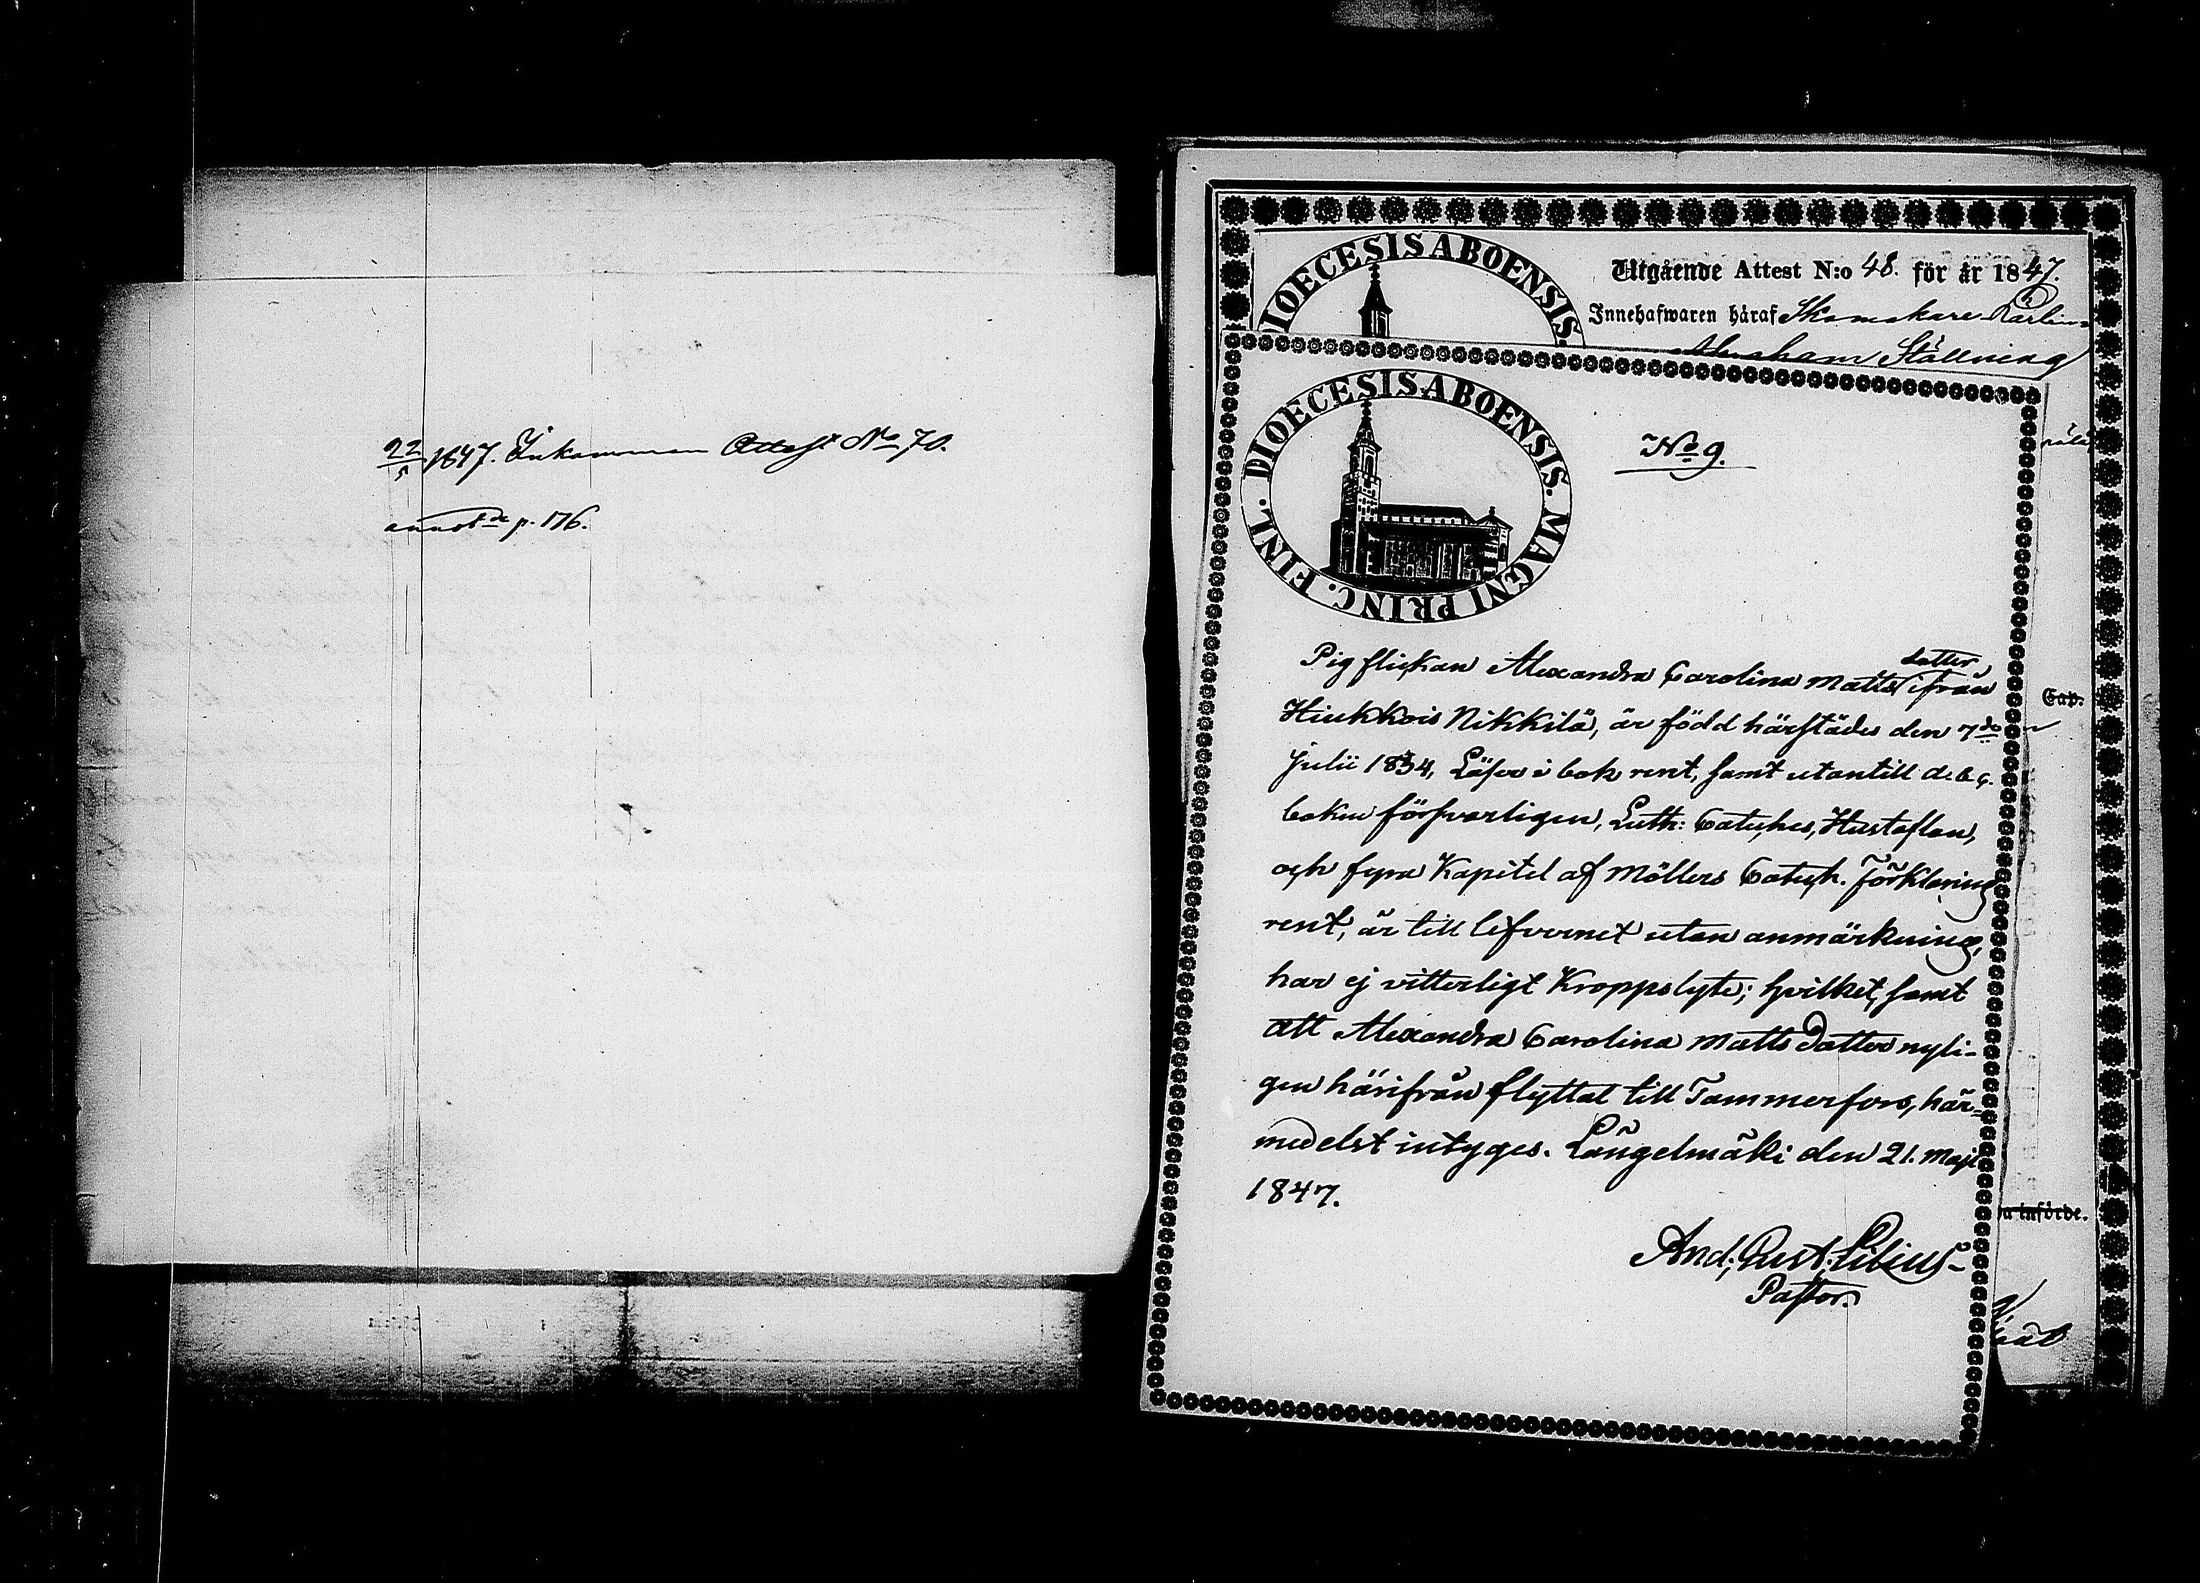 22/5 1847. Inkommen Attest No 70.
annotde p. 176.
Utgående Attest N:o 48. för år 1847.
Innehafwaren häraf Skomakare Karlin
Abraham Ställning
DIOECESIS ABOENSIS.
DIOECESIS ABOENSIS. MAGNI PRINC. FINL.
No 9.
Pigflickan Alexandra Carolina Matts dotter ifrån
Hiukkois Nikkilä, är född härstädes den 7de
Julii 1834, Läser i bok rent, samt utantill A.b.c.
boken försvarligen, Luth: Cateches, Hustaflan,
och fyra Kapitel af Möllers Catech. Förklaring
rent, är till lefvernet utan anmärkning,
har ej vitterligt Kroppslyte; hvilket, samt
att Alexandra Carolina Matts Dotter nyli-
gen härifrån flyttat till Tammerfors, här-
medelst intyges. Längelmäki den 21. Maji
1847.
And: Gust: Lilius
Pastor.
Cap.
a införde.